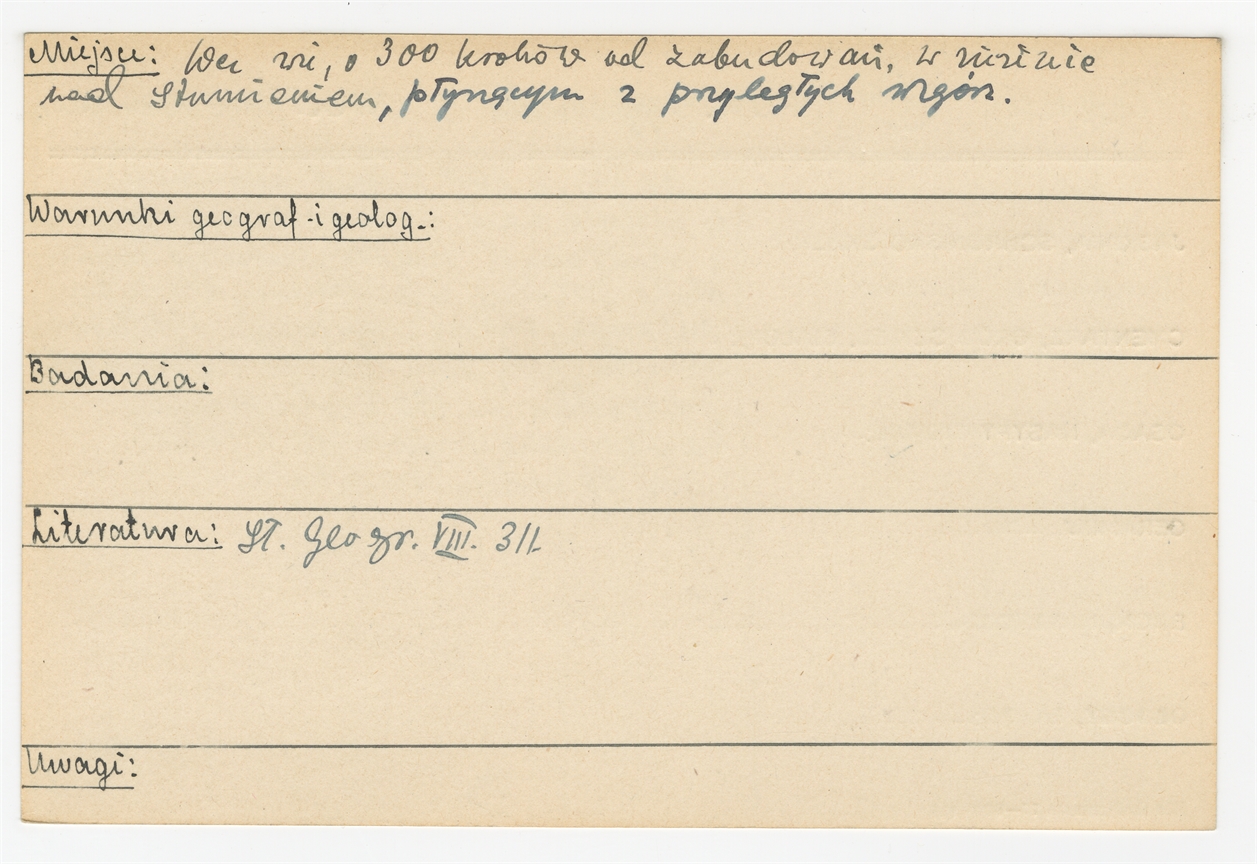 Miejsce: We wsi, o 300 kroków od zabudowań, w nizinie
nad strumieniem, płynącym z przyległych wzgórz.
Warunki geograf.-i geolog.:
Badania:
Literatura: Sł. Geogr. VIII. 311.
Uwagi: